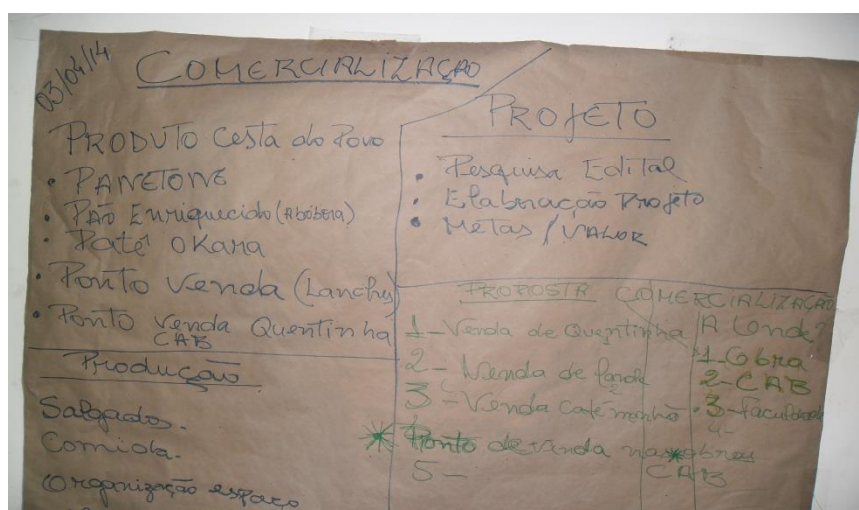 03/04/14
COMERCIALIZAÇÃO
PRODUTO Cesta do Povo
• PANETONE
• PÃO Enriquecido (Abóbora)
• Patê OKARA
• Ponto Venda (Lanches)
• Ponto Venda Quentinha
CAB
Produção
Salgados.
Comida.
Organização espaço
PROJETO
• Pesquisa Edital
• Elaboração Projeto
• Metas / VALOR
PROPOSTA COMERCIALIZAÇÃO
1 - Venda de Quentinha
2 - Venda de
3 - Venda Café manhã
* Ponto de venda nas obras
5 - CAB
A Onde?
1 - Obra
2 - CAB
3 - Faculdade
4 -